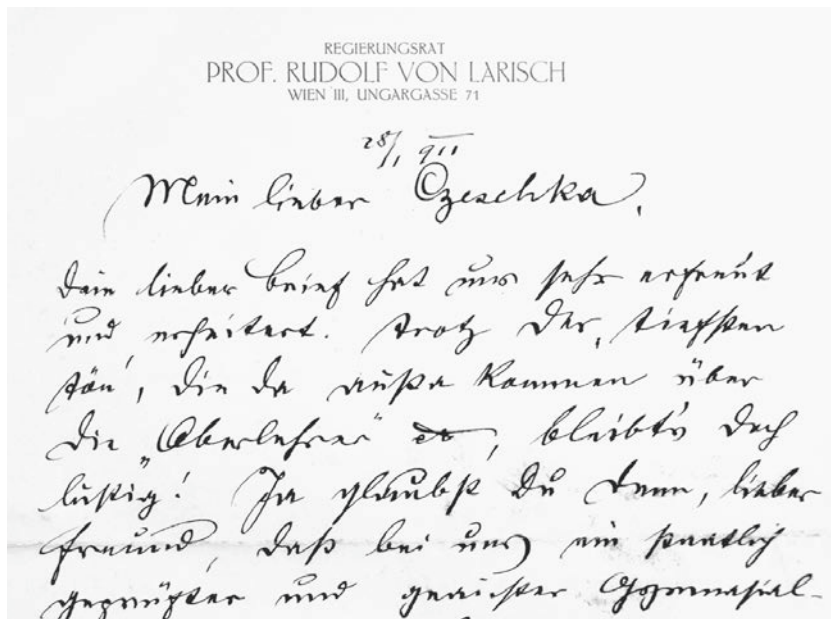 REGIERUNGSRAT
PROF. RUDOLF VON LARISCH
WIEN III, UNGARGASSE 71
28/1 911
Mein lieber Czeschka,
dein lieber brief hat uns sehr erfreut
und erheitert. trotz der „tiefsten
tön“, die da außa kommen über
die „Oberlehrer“, bleibt's doch
lustig! Ja glaubst du denn, lieber
freund, daß bei uns ein staatlich
geprüfter und geaichter Gymnasial-